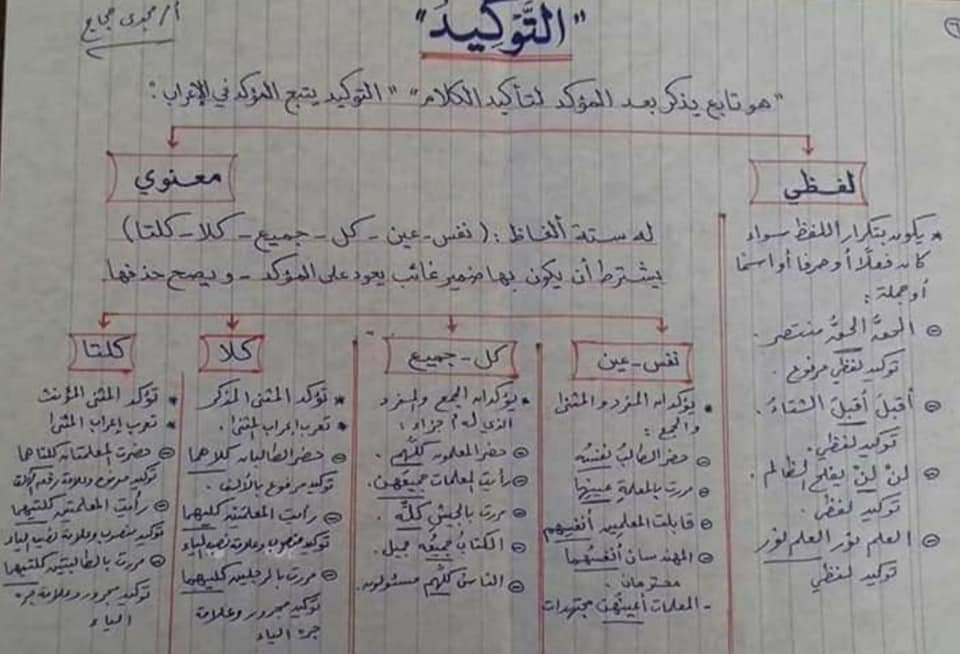 أ/ مجدى حجاج
٦
"التَّوْكِيد"
"هو تابع يذكر بعد المؤكد لتأكيد الكلام" "التوكيد يتبع المؤكد في الإعراب:
لفظي
* يكون بتكرار اللفظ سواء
كان فعلًا أو حرفًا أو اسمًا
أو جملة:
الحقُّ الحقُّ منتصر.
توكيد لفظي مرفوع.
أقبلَ أقبلَ الشتاءُ.
توكيد لفظي.
لنْ لنْ يفلح الظالم.
توكيد لفظي.
العلم نور العلم نور
توكيد لفظي
معنوي
له ستة ألفاظ: (نفس - عين - كل - جميع - كلا - كلتا)
يشترط أن يكون بها ضمير غائب يعود على المؤكد - ويصح حذفها
نفس - عين
* يؤكدان المفرد والمثنى
والجمع:
حضر الطالبُ نفسُه
مررت بالمعلمةِ عينِها
قابلت المعلمِين أنفسَهم
المهندسان أنفسُهما
محترمان.
- المعلمات أعينُهن مجتهدات
كل - جميع
* يؤكدان الجمع والمفرد
الذي له أجزاء:
حضر المعلمون كلُّهم.
رأيت المعلمات جميعَهن.
مررت بالجيشِ كلِّه.
الكتابُ جميعُه جميل.
الناس كلُّهم مسئولون.
كلا
* تؤكد المثنى المذكر
* تعرب إعراب المثنى.
حضر الطالبان كلاهما
توكيد مرفوع بالألف.
رأيت المعلمَين كليهما
توكيد منصوب وعلامة نصبه الياء
مررت بالرجلين كليهما
توكيد مجرور وعلامة
جره الياء
كلتا
* تؤكد المثنى المؤنث
* تعرب إعراب المثنى
حضرت المعلمتان كلتاهما
توكيد مرفوع وعلامة رفعه الألف
رأيت المعلمتين كلتيهما
توكيد منصوب وعلامة نصبه الياء
مررت بالطالبتين كلتيهما
توكيد مجرور وعلامة جره
الياء